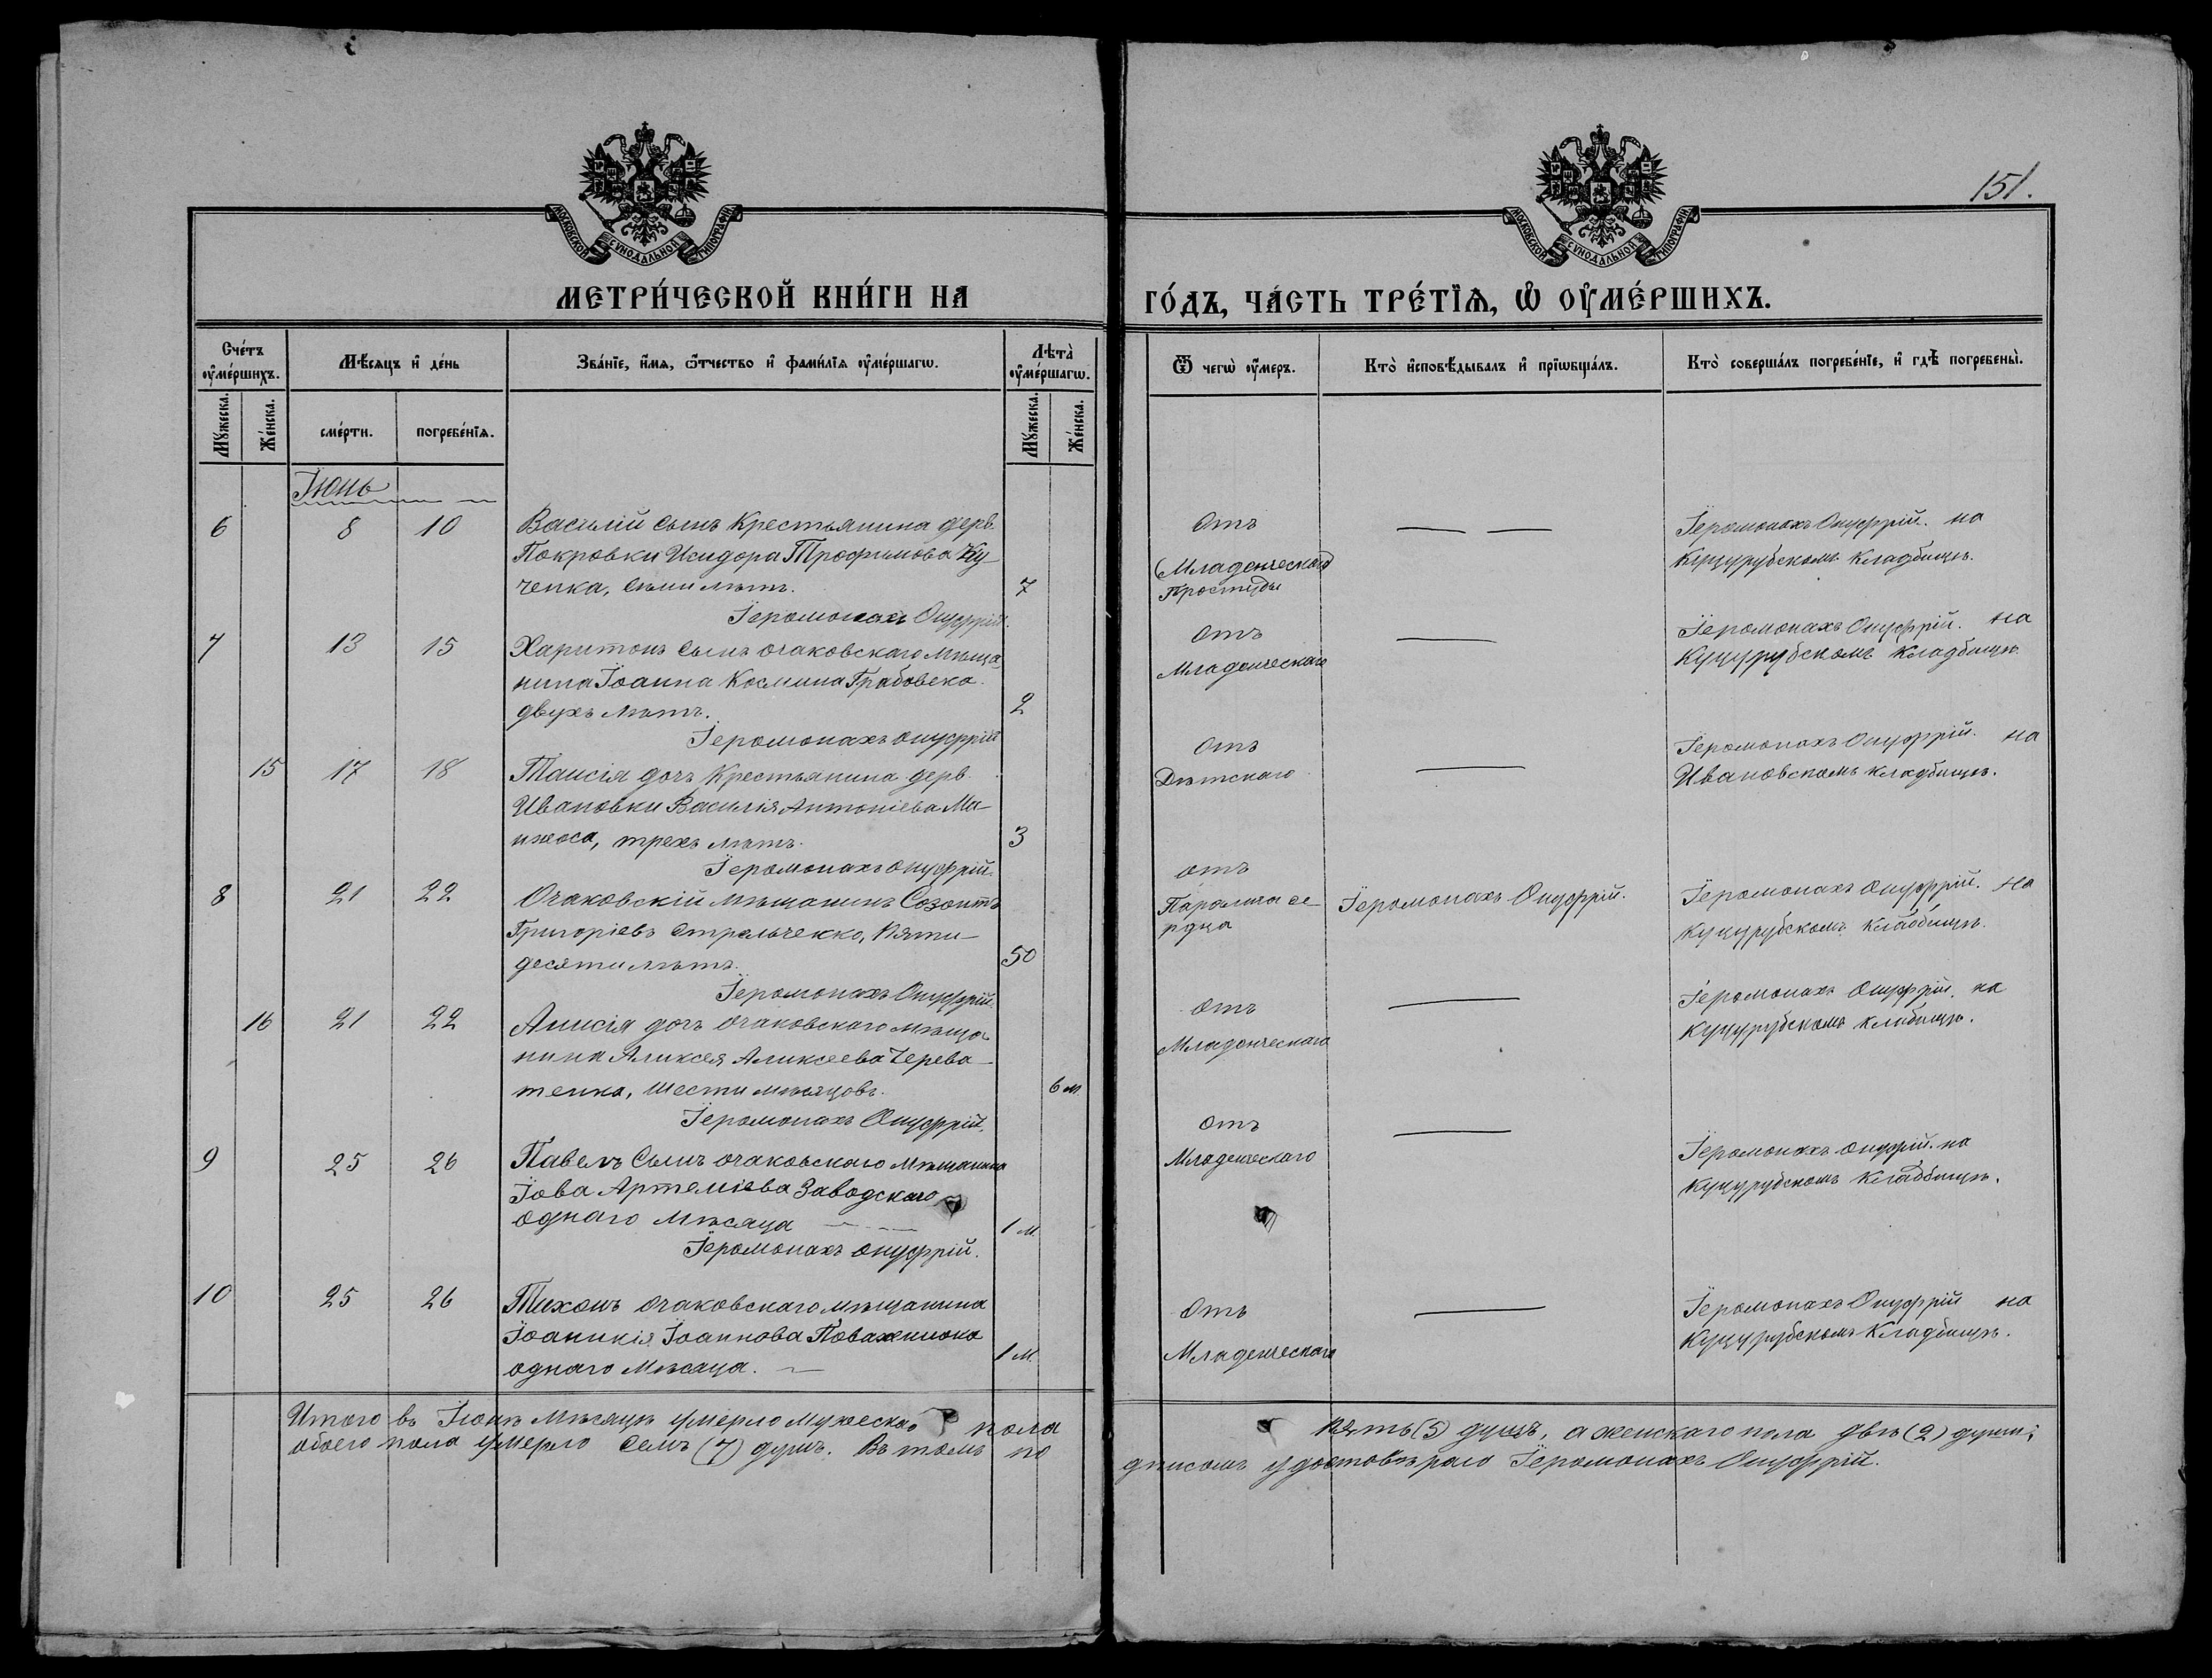 151.
МОСКОВСКОЙ СѴНОДАЛЬНОЙ ТИПОГРАФІИ
МОСКОВСКОЙ СѴНОДАЛЬНОЙ ТИПОГРАФІИ
МЕТРИ́ЧЕСКОЙ КНИ́ГИ НА ГО́ДЪ, ЧА́СТЬ ТРЕ́ТЇѦ, Ѡ҆ ОУ҆МЕ́РШИХЪ.
Сче́тъ оу҆ме́ршихъ.
Мѣ́сяцъ и҆ де́нь
Зва́нїе, и҆́мѧ, ѻ҆́тчество и҆ фами́лїѧ оу҆ме́ршагѡ.
Лѣта̀ оу҆ме́ршагѡ.
Ѿ чегѡ̀ оу҆́меръ.
Кто̀ и҆сповѣ́дывалъ и҆ прїѡбща́лъ.
Кто̀ соверша́лъ погребе́нїе, и҆ гдѣ̀ погребены̀.
Мꙋ́жеска.
Же́нска.
сме́рти.
погребе́нїѧ.
Мꙋ́жеска.
Же́нска.
Іюнь
6 8 10 Василій сынъ Крестьянина дерв.
Покровки Исидора Трофимова Ку-
ченка, семи лѣтъ. 7
Іеромонахъ Онуфрій.
Отъ
Младенческой
Простуды
Іеромонахъ Онуфрій. на
Куцурубскомъ Кладбищѣ.
7 13 15 Харитонъ сынъ очаковскаго мѣща
нина Іоанна Космина Грабовска.
двухъ лѣтъ. 2
Іеромонахъ Онуфрій
Отъ
Младенческаго
Іеромонахъ Онуфрій. на
Куцурубскомъ Кладбищѣ.
15 17 18 Таисія дочь Крестьянина дерв.
Ивановки Василія Антоніева Ма-
нжоса, трехъ лѣтъ. 3
Іеромонахъ Онуфрій.
Отъ
Дѣтскаго
Іеромонахъ Онуфрій. на
Ивановскомъ кладбищѣ.
8 21 22 Очаковскій мѣщанинъ Созонтъ
Григоріевъ Стрельченко, Пяти-
десяти лѣтъ. 50
Іеромонахъ Онуфрій.
отъ
Паралича се-
рдца
Іеромонахъ Онуфрій.
Іеромонахъ Онуфрій. на
Куцурубскомъ Кладбищѣ.
16 21 22 Анисія дочь очаковскаго мѣща-
нина Аликсея Аликсеева Черева-
тенка, шести мѣсяцовъ. 6 м.
Іеромонахъ Онуфрій.
Отъ
Младенческаго
Іеромонахъ Онуфрій. на
Куцурубскомъ Кладбищѣ.
9 25 26 Павелъ Сынъ очаковскаго мѣщанина
Іова Артеміева Заводскаго
однаго мѣсяца 1 м.
Іеромонахъ Онуфрій.
Отъ
Младенческаго
Іеромонахъ онуфрій. на
Куцурубскомъ Кладбищѣ.
10 25 26 Тихонъ очаковскаго мѣщанина
Іоаникія Іоаннова
однаго Мѣсяца. 1 м.
Отъ
Младенческаго
Іеромонахъ Онуфрій на
Куцурубскомъ Кладбищѣ.
Итого въ Іюнѣ Мѣсяцѣ умерло мужескаго пола пять (5) душъ, а женскаго пола двѣ (2) души;
обоего пола умерло семь (7) душъ. Въ томъ по дписомъ удостовѣраю Іеромонахъ Онуфрій.